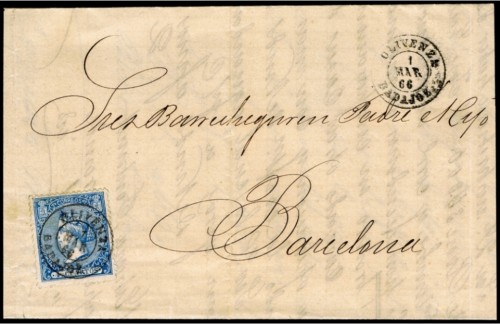 OLIVENZA
1
MAR
66
BADAJOZ
Sres Barrenheguren Padre e Hijo
OLIVENZA
Barcelona